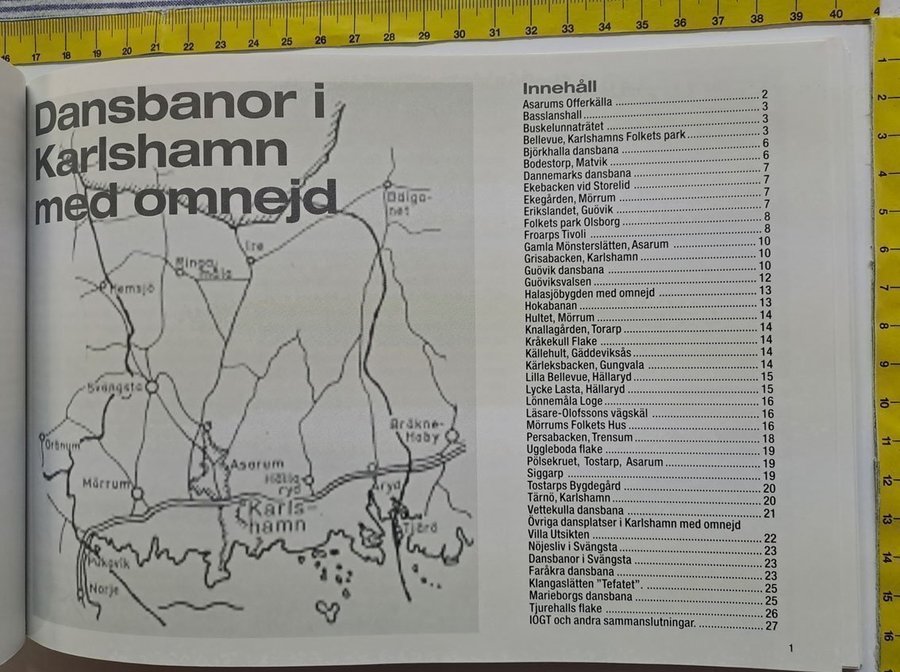 Dansbanor i
Karlshamn
med omnejd
Ire
Hemsjö
Svängsta
Asarum
Mörrum
Hälla
ryd
Karls-
hamn
Bräkne-
Hoby
Åryd
Tjärö
Pukavik
Norje
Innehåll
Asarums Offerkälla ........ 2
Basslanshall ........ 3
Buskelunnaträtet ........ 3
Bellevue, Karlshamns Folkets park ........ 3
Björkhalla dansbana ........ 6
Bodestorp, Matvik ........ 6
Dannemarks dansbana ........ 7
Ekebacken vid Storelid ........ 7
Ekegården, Mörrum ........ 7
Erikslandet, Guövik ........ 7
Folkets park Olsborg ........ 8
Froarps Tivoli ........ 8
Gamla Mönsterslätten, Asarum ........ 10
Grisabacken, Karlshamn ........ 10
Guövik dansbana ........ 10
Guöviksvalsen ........ 12
Halasjöbygden med omnejd ........ 13
Hokabanan ........ 13
Hultet, Mörrum ........ 14
Knallagården, Torarp ........ 14
Kråkekull Flake ........ 14
Källehult, Gäddeviksås ........ 14
Kärleksbacken, Gungvala ........ 14
Lilla Bellevue, Hällaryd ........ 15
Lycke Lasta, Hällaryd ........ 15
Lönnemåla Loge ........ 16
Läsare-Olofssons vägskäl ........ 16
Mörrums Folkets Hus ........ 16
Persabacken, Trensum ........ 18
Uggleboda flake ........ 19
Pölsekruet, Tostarp, Asarum ........ 19
Siggarp ........ 19
Tostarps Bygdegård ........ 20
Tärnö, Karlshamn ........ 20
Vettekulla dansbana ........ 21
Övriga dansplatser i Karlshamn med omnejd
Villa Utsikten ........ 22
Nöjesliv i Svängsta ........ 23
Dansbanor i Svängsta ........ 23
Faråkra dansbana ........ 23
Klangaslätten "Tefatet". ........ 25
Marieborgs dansbana ........ 25
Tjurehalls flake ........ 26
IOGT och andra sammanslutningar. ........ 27
1